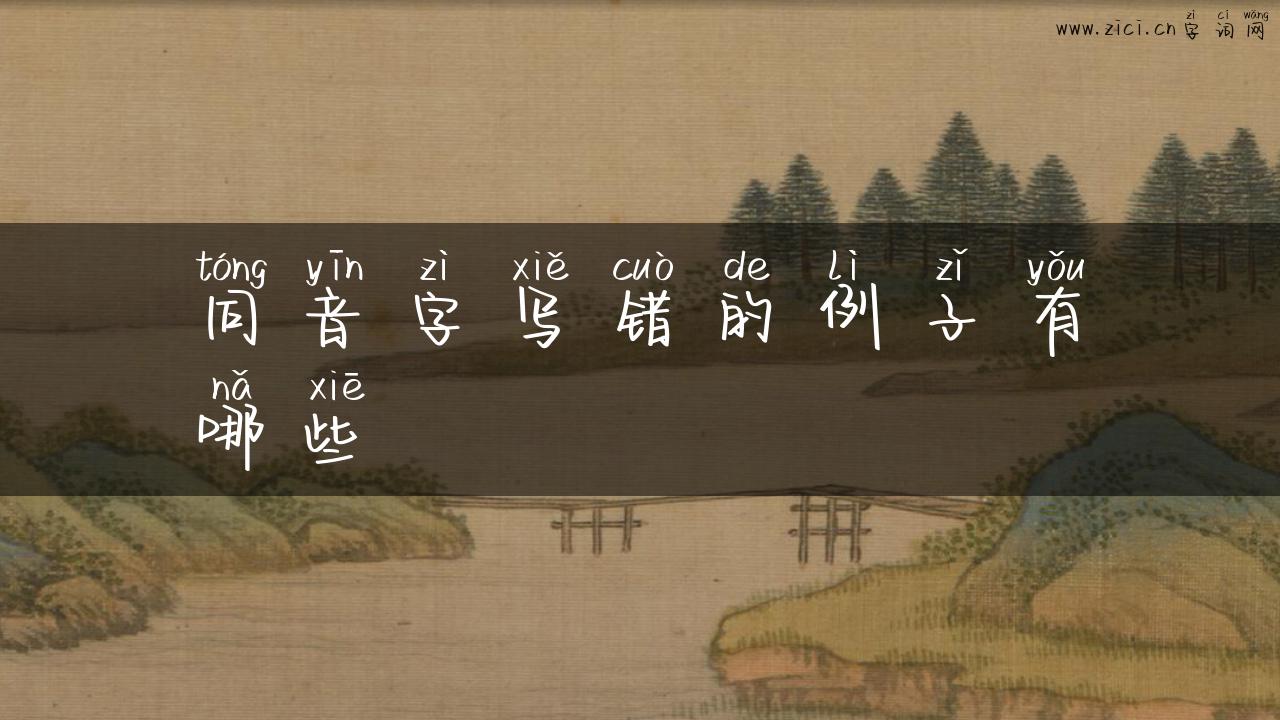 zì cí wǎng
www.zici.cn 字词网
tóng yīn zì xiě cuò de lì zǐ yǒu
同音字写错的例子有
nǎ xiē
哪些